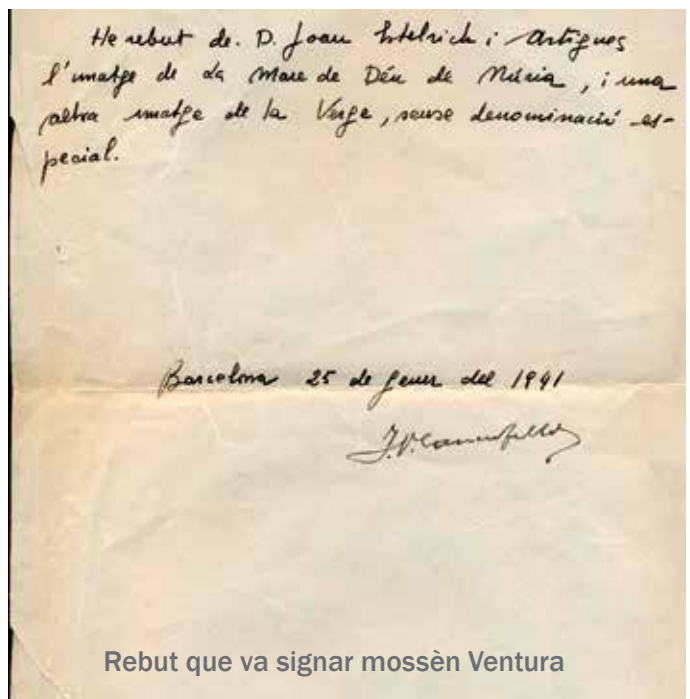 He rebut de D. Joan Estelrich i Artigues
l'imatge de La Mare de Déu de Núria, i una
altra imatge de la Verge, sense denominació es-
pecial.
Barcelona 25 de gener del 1941
Rebut que va signar mossèn Ventura